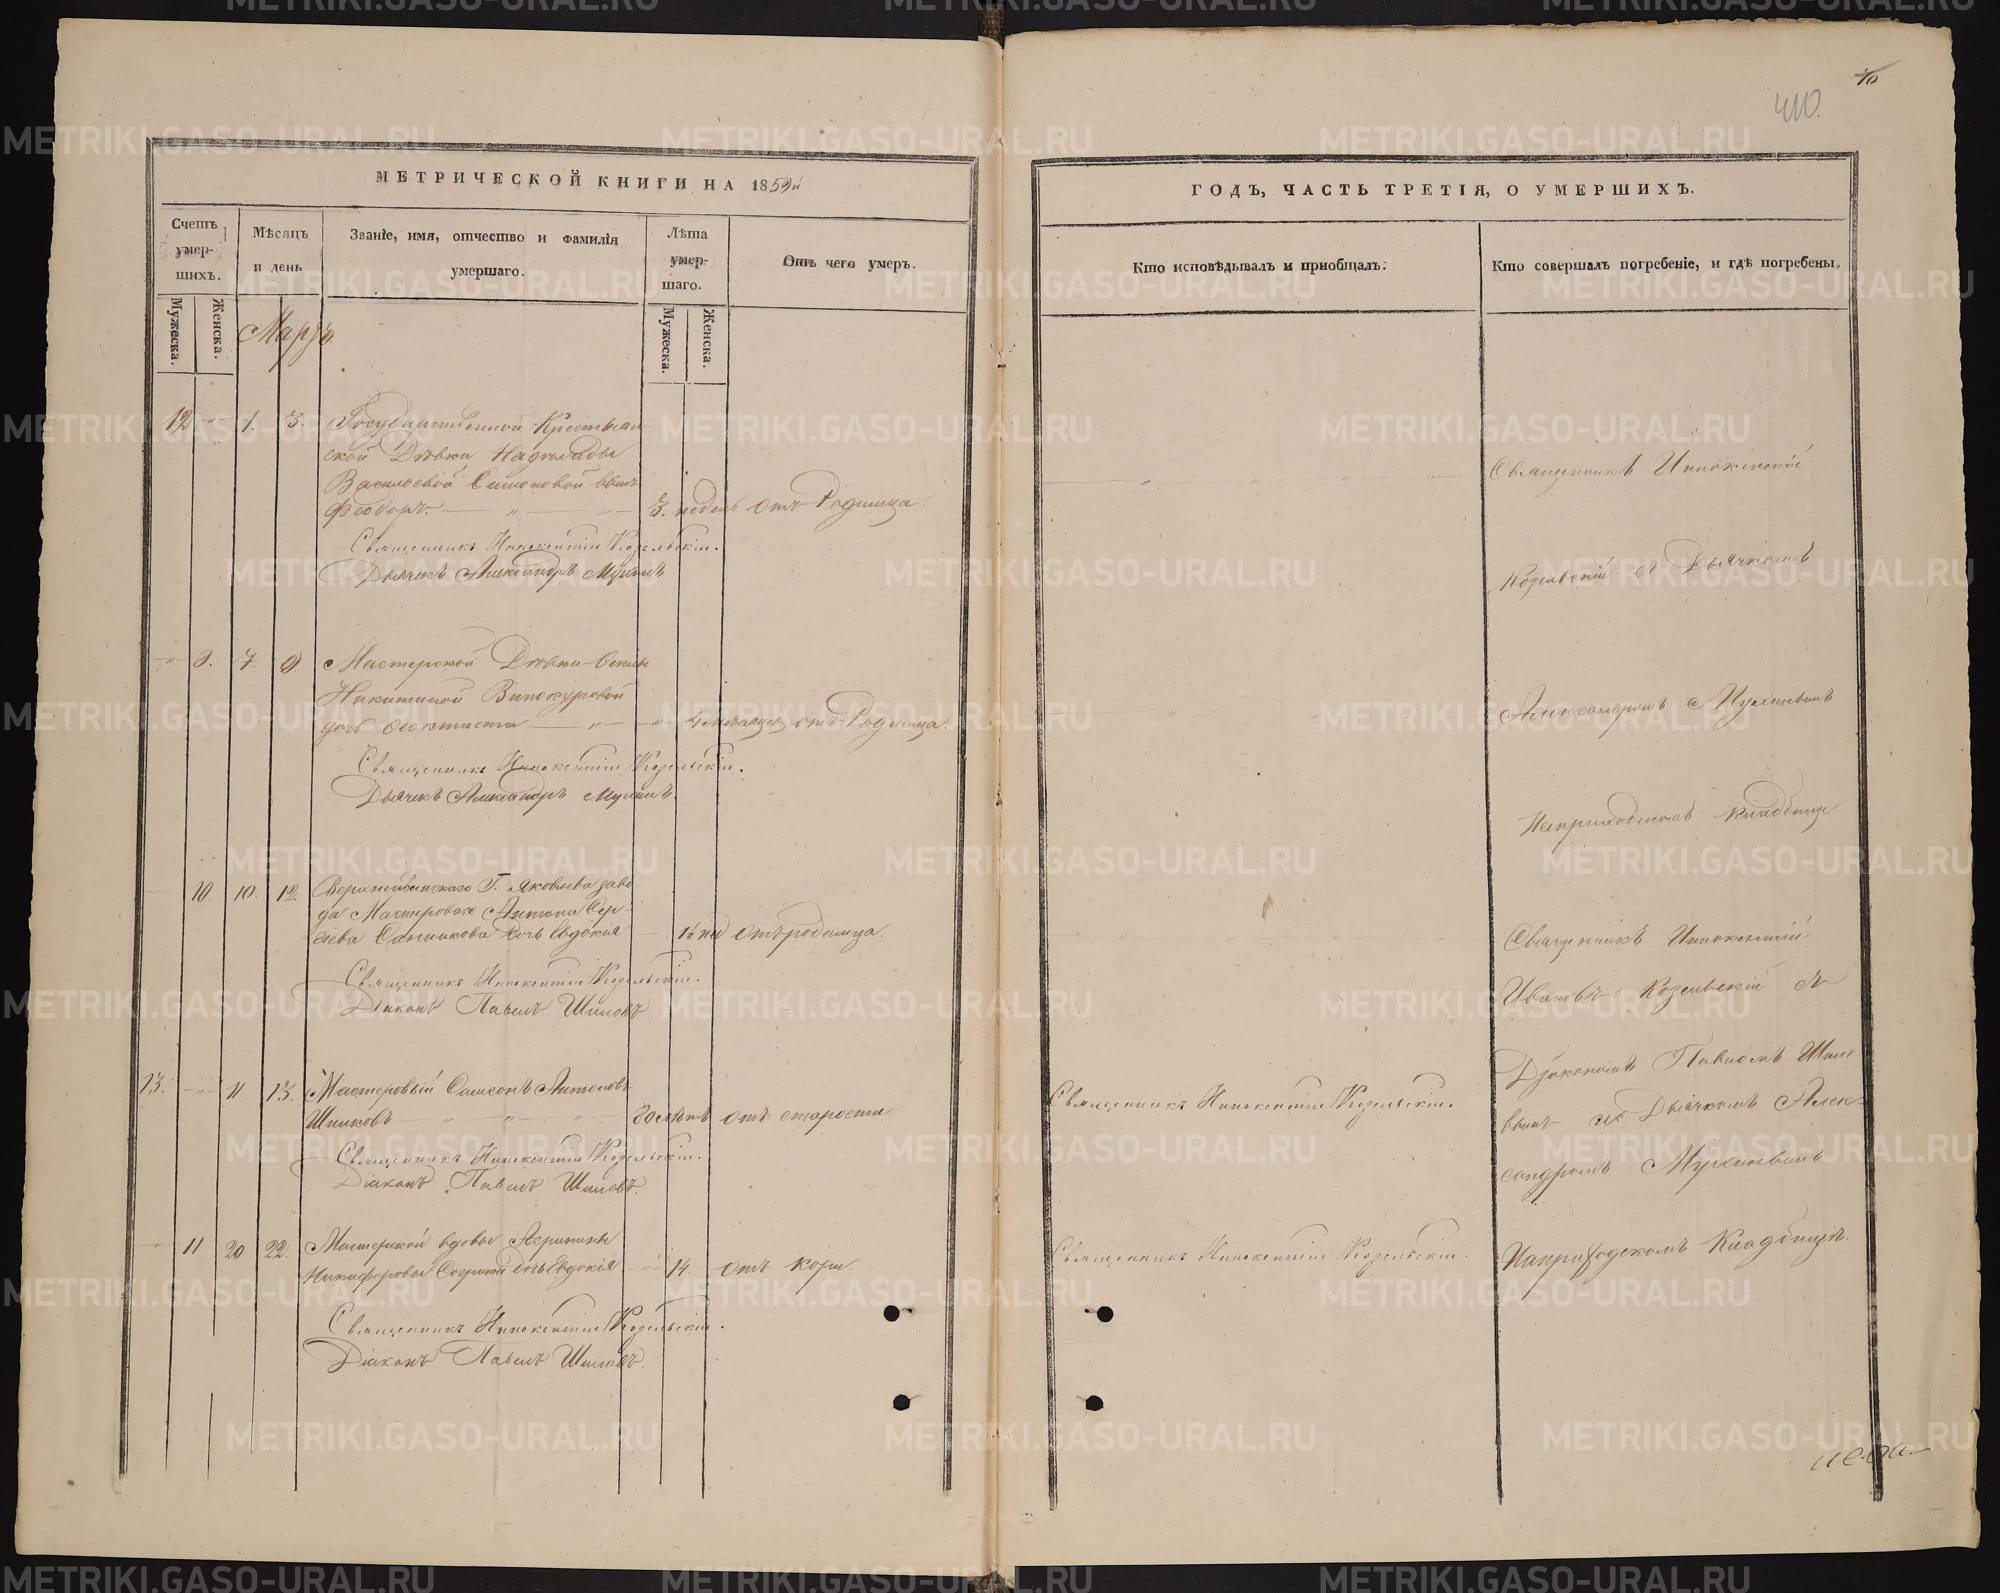 40
410.
МЕТРИЧЕСКОЙ КНИГИ НА 1859й
ГОДЪ, ЧАСТЬ ТРЕТІЯ, О УМЕРШИХЪ.
Счетъ умер-шихъ.
Мѣсяцъ и день
Званіе, имя, отчество и фамилія умершаго.
Лѣта умер-шаго.
Отъ чего умеръ.
Кто исповѣдывалъ и пріобщалъ.
Кто совершалъ погребеніе, и гдѣ погребены.
Мужеска.
Женска.
Мартъ.
Мужеска.
Женска.
12 „ 1. 3. Государственной Крестьян
ской Дѣвки Надежды
Васильевой Симоновой сынъ
Феодоръ. „ „ 3. недѣль отъ Родимца
Священникъ Иннокентій Козельскій.
Дьячекъ Александръ Мухинъ
„ 9. 7. 9. Мастерской Дѣвки
Никитиной Винокуровой
дочь Феоктиста „ „ 4 мѣсяцев отъ Родимца.
Священникъ Иннокентій Козельскій.
Дьячекъ Александръ Мухинъ.
10. 10. 12. Верхнейвинскаго Г. Яковлева заво
да Мастероваго Антона Сер-
геева Санникова дочь Евдокія 1½ нед отъ родимца.
Священникъ Иннокентій Козельскій.
Діаконъ Павелъ Шиловъ.
13. „ 11 13. Мастеровый Самсонъ Антоновъ
Шишковъ „ „ „ 70 лѣтъ отъ старости
Священникъ Иннокентій Козельскій.
Діаконъ Павелъ Шиловъ.
11 20 22. Мастерской вдовы Агрипины
Никифоровой дочь Евдокія „ 14 отъ кори.
Священникъ Иннокентій Козельскій.
Діаконъ Павелъ Шиловъ.
Священникъ Иннокентій Козельскій.
Священникъ Иннокентій Козельскій.
Священникъ Иннокентій
Козельскій съ Дьячкомъ
Александромъ Мухинымъ
На приходскомъ кладбище
Священникъ Иннокентій
Ивановъ Козельскій съ
Діакономъ Павломъ Шило
вымъ и съ Дьячкомъ Алек-
сандромъ Мухинымъ
На приходскомъ Кладбищѣ.
METRIKI.GASO-URAL.RU